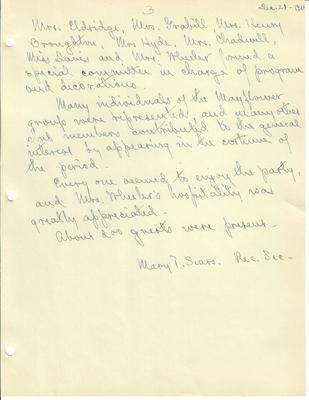 3
Dec. 28 - 19
Mrs. Eldridge, Mrs. Grabill, Mrs. Henry
Broughton, Mrs Hyde, Mrs. Chadwell,
Miss Davis and Mrs. Wheeler formed a
special committee in charge of program
and decorations.
Many individuals of the Mayflower
group were represented, and many other
club members contributed to the general
interest by appearing in the costume of
the period.
Every one seemed to enjoy the party,
and Mrs. Wheeler's hospitality was
greatly appreciated.
About 200 guests were present.
Mary T. Sears. Rec. Sec.